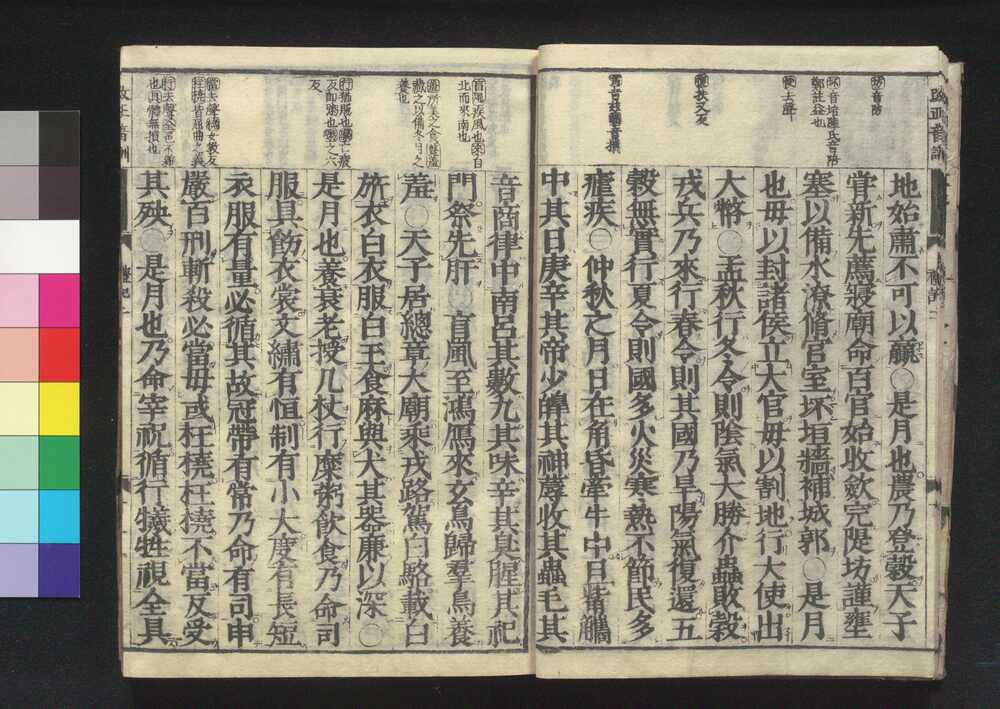 地始肅不可以贏〇是月也農乃登穀天子
甞新先薦寢廟命百官始收斂完隄坊謹壅
塞以備水潦脩宮室坏垣牆補城郭〇是月
也毋以封諸侯立大官毋以割地行大使出
大幣〇孟秋行冬令則陰氣大勝介蟲敗穀
戎兵乃來行春令則其國乃旱陽氣復還五
穀無實行夏令則國多火災寒熱不節民多
瘧疾〇仲秋之月日在角昏牽牛中旦觜觿
中其日庚辛其帝少皥其神蓐收其蟲毛其
音商律中南呂其數九其味辛其臭腥其祀
門祭先肝〇盲風至鴻鴈來玄鳥歸羣鳥養
羞〇天子居總章大廟乘戎路駕白駱載白
旂衣白衣服白玉食麻與犬其器廉以深〇
是月也養衰老授几杖行糜粥飲食乃命司
服具飭衣裳文繡有恒制有小大度有長短
衣服有量必循其故冠帶有常乃命有司申
嚴百刑斬殺必當毋或枉橈枉橈不當反受
其殃〇是月也乃命宰祝循行犧牲視全具
坊音防
坏音培
使去聲
復扶又反
盲風疾風也
北而來南也
養也
反